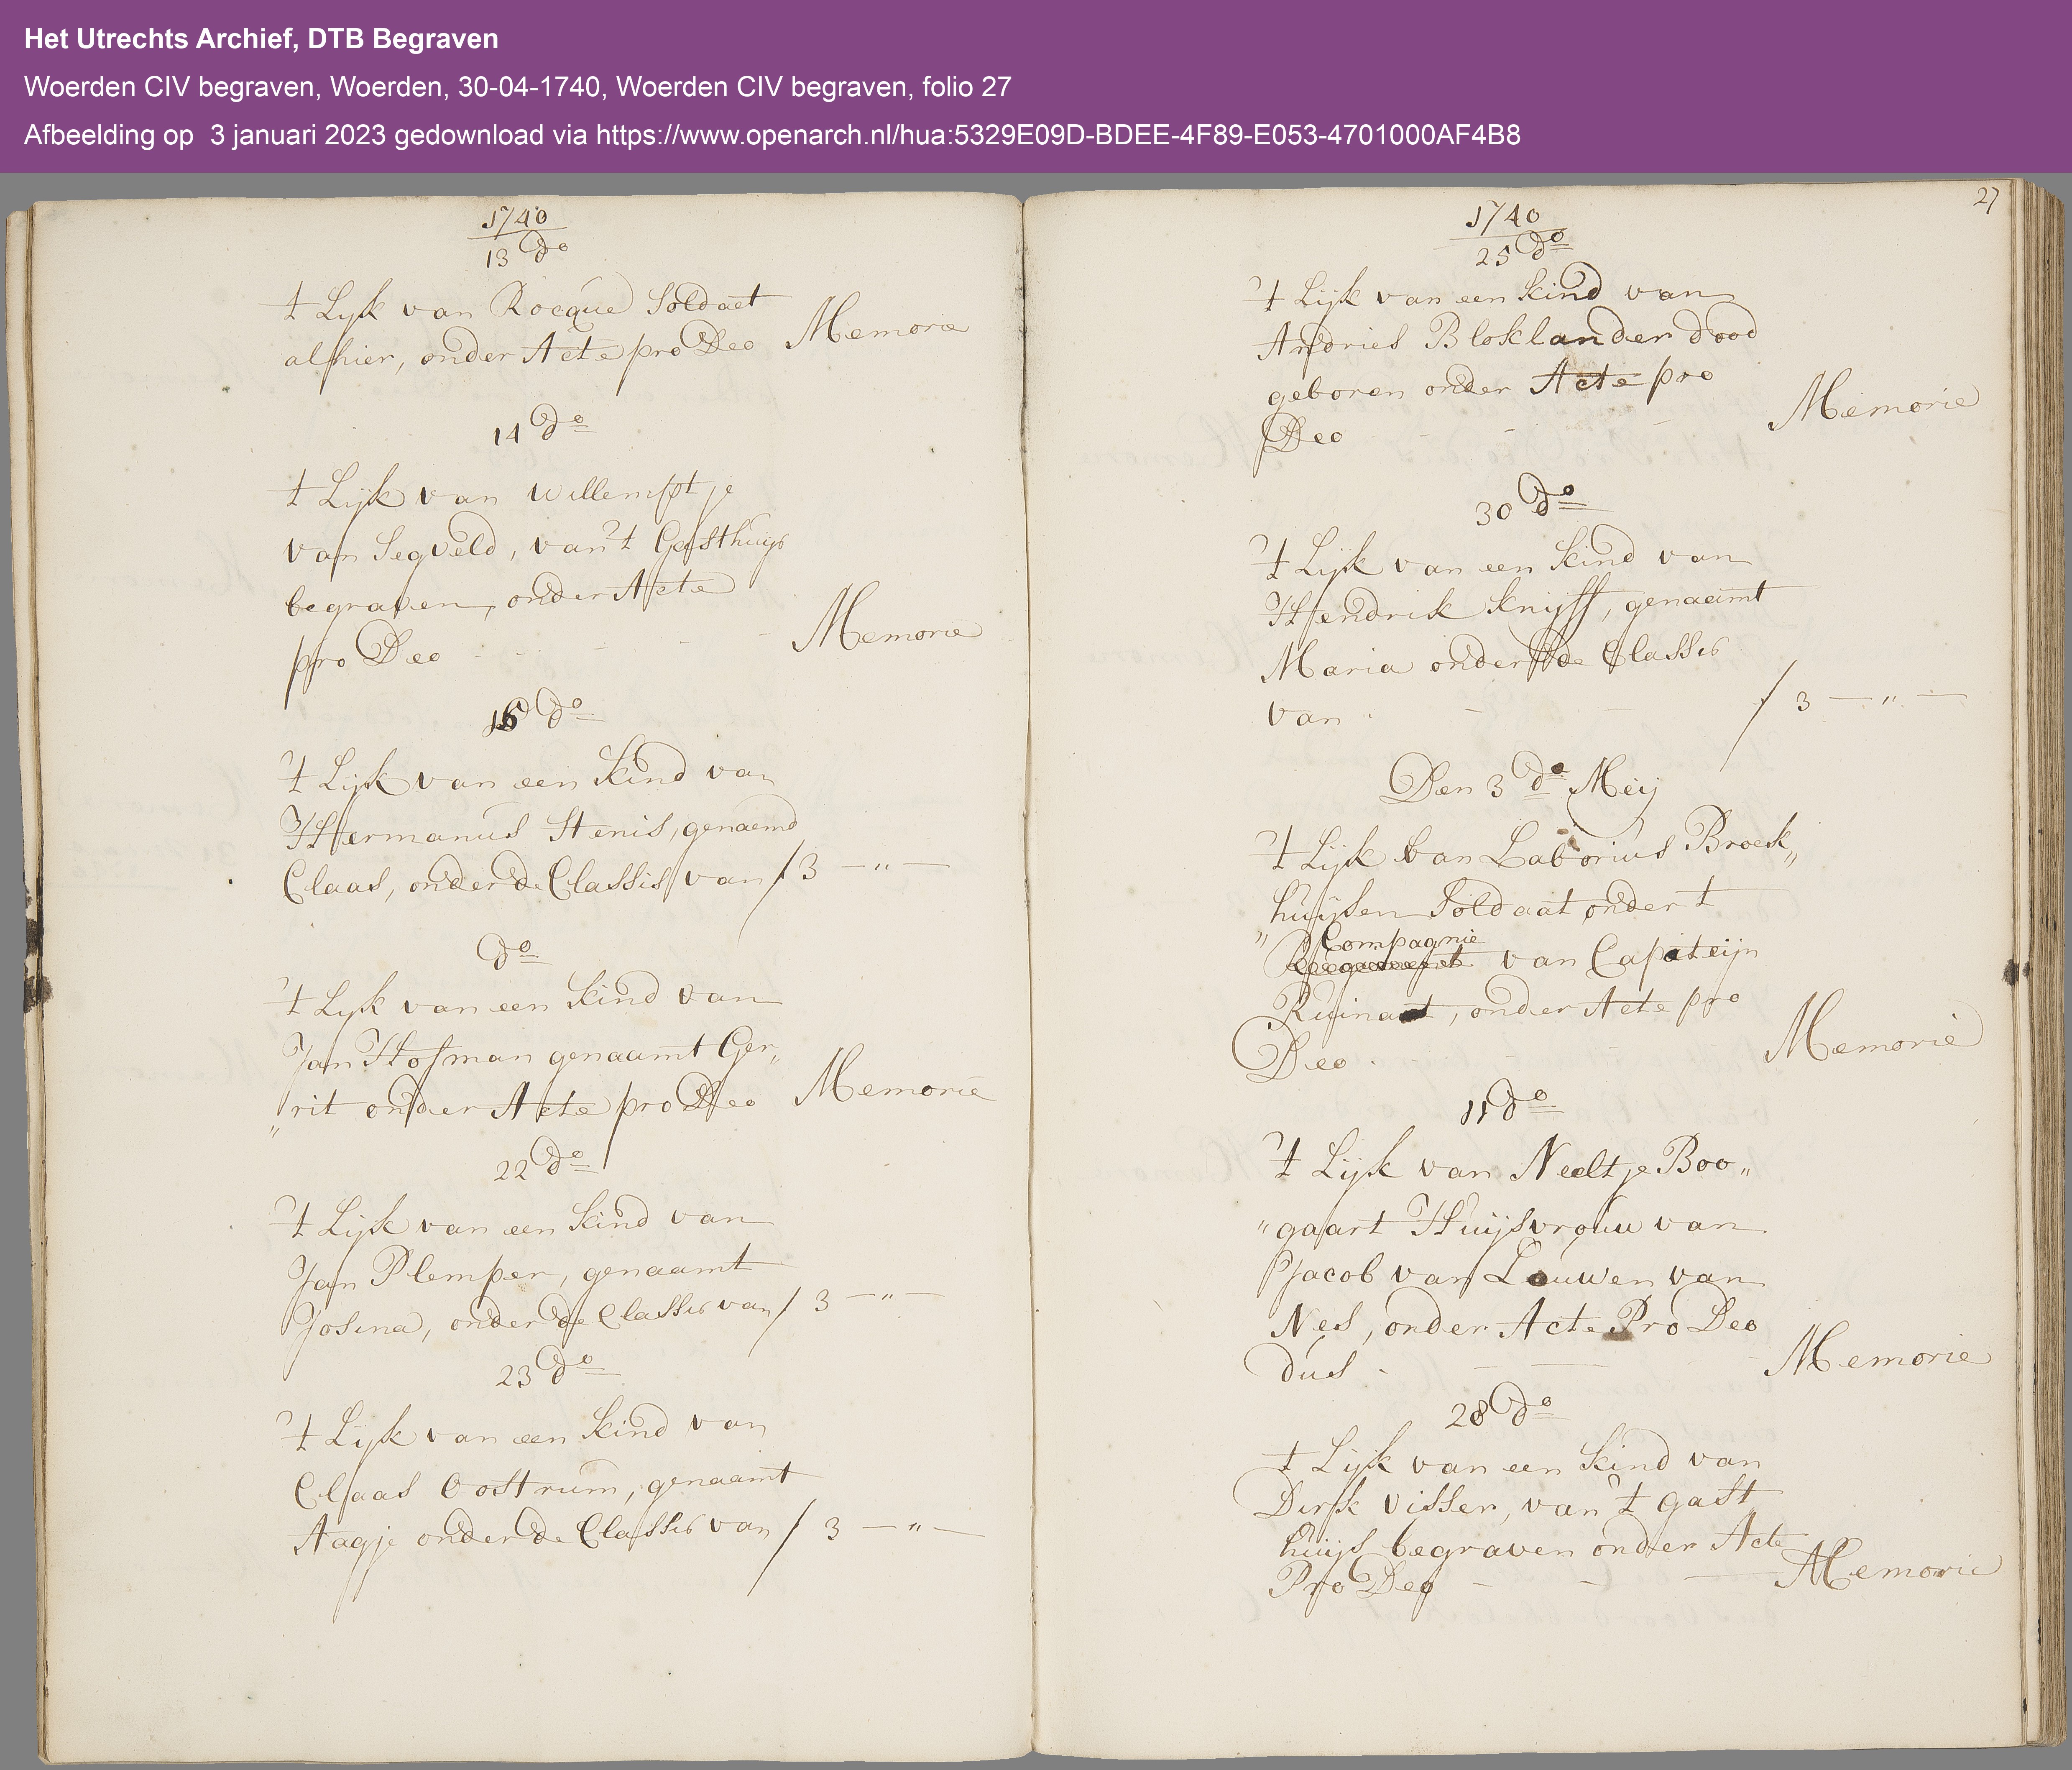 Het Utrechts Archief, DTB Begraven
Woerden CIV begraven, Woerden, 30-04-1740, Woerden CIV begraven, folio 27
Afbeelding op 3 januari 2023 gedownload via https://www.openarch.nl/hua:5329E09D-BDEE-4F89-E053-4701000AF4B8
1740
13 do
t Lyk van Rocque Soldaet
alhier, onder Acte pro Deo Memorie
14 do
t Lijk van Willemptje
van Segveld, van 't Gasthuijs
begraven, onder Acte
pro Deo - - - Memorie
do
't Lijk van een kind van
Hermanus Stenis, genaemd
Claas, onder de Classis van f 3 — " —
do
't Lyk van een kind van
Jan Hofman genaamt Ger„
„rit onder Acte pro Deo Memorie
22 do
't Lijk van een kind van
Jan Plemper, genaamt
Josina, onder de Classis van f 3 — " —
23 do
't Lijk van een kind van
Claas Oostrum, genaamt
Aagje onder de Classis van f 3 — " —
27
1740
25 do
't Lijk van een kind van
Andries Bloklander dood
geboren onder Acte pro
Deo - - - Memorie
30 do
't Lijk van een kind van
Hendrik Knijff, genaamt
Maria onder de Classis
van - - f 3 — " —
Den 3 do Meij
't Lijk van Laborius Broek„
„huijsen Soldaat onder t
Compagnie
van Capiteijn
Ruinart, onder Acte pro
Deo - - - Memorie
11 do
't Lijk van Neeltje Boo„
„gaart Huijsvrouw van
Jacob van Louwen van
Nes, onder Acte Pro Deo
dus - - - Memorie
28 do
t Lijk van een kind van
Dirk Visser, van 't gast
huijs begraven onder Acte
Pro Deo - - — Memorie